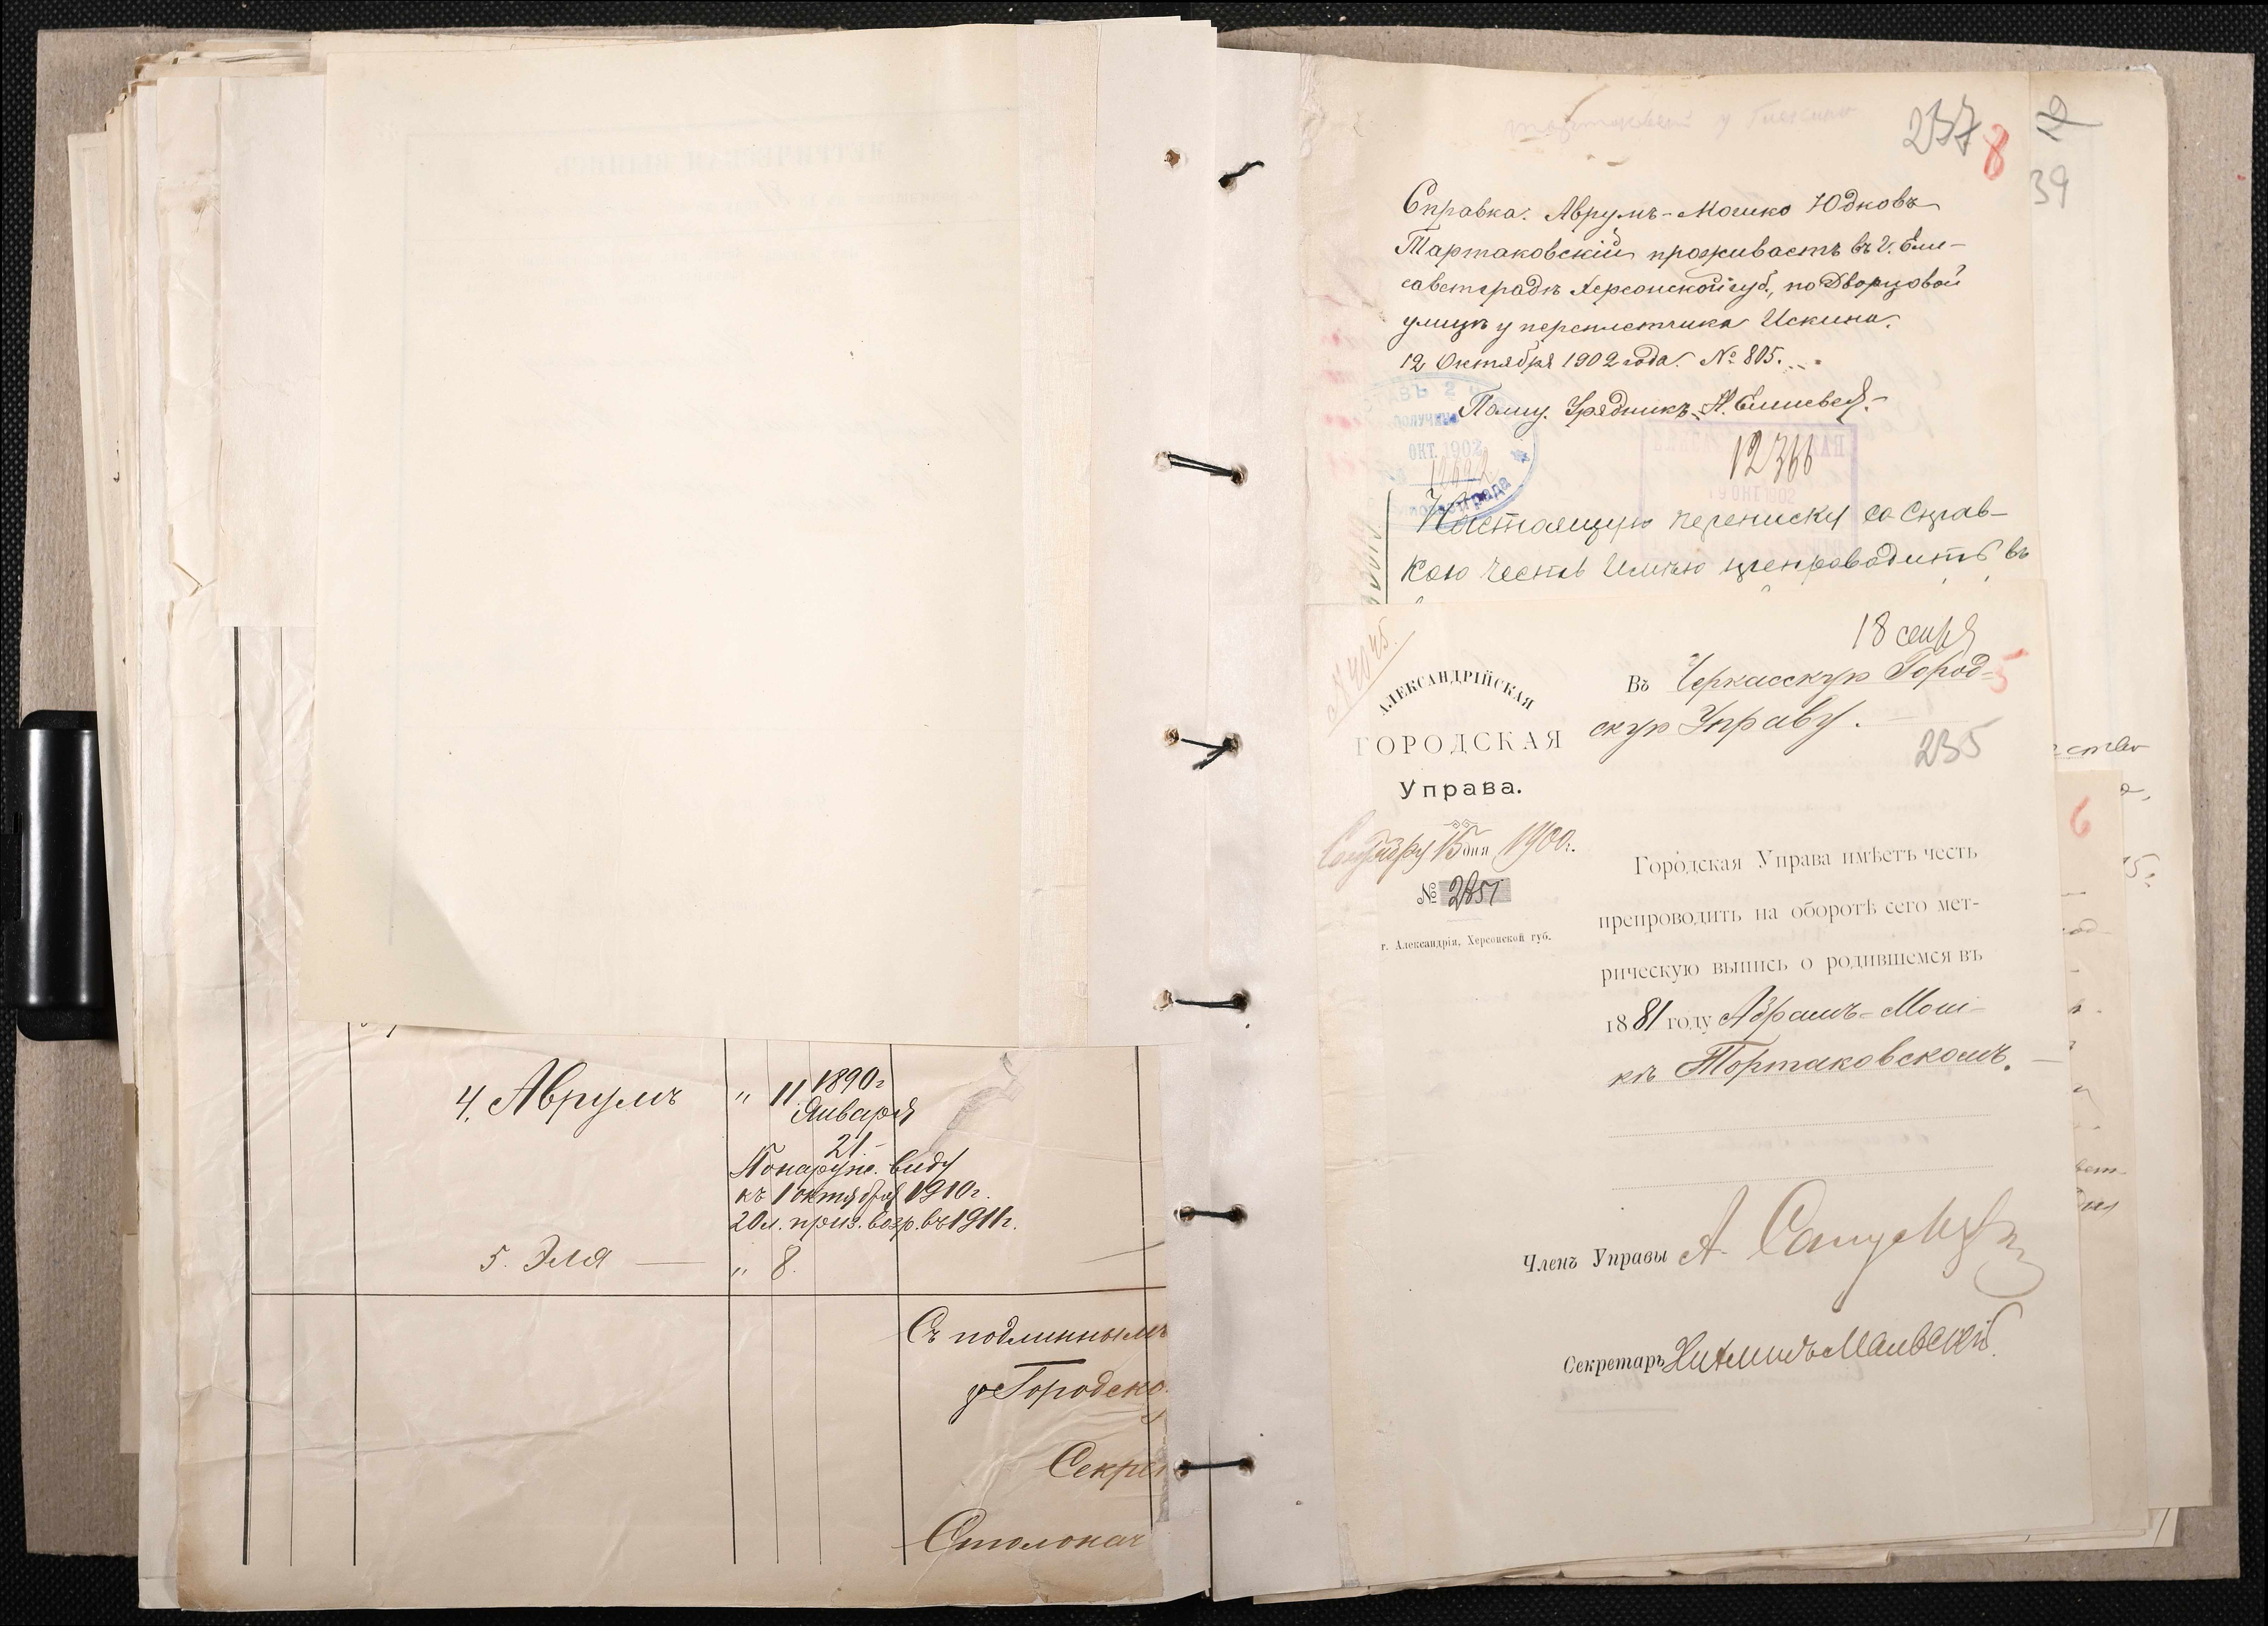 4. Аврумъ " 11 1890г
Января
21.
Понаруж. виду
къ 1 октября 1910г.
20 л. приз. возр. въ 1911г.
5. Эля — " 8.
Съ подлиннымъ
Городско
Секре
Столонач
237 8
19
39
Справка. Аврумъ-Мошко Юдковъ
Тартаковскій проживаетъ въ г. Ели-
саветградѣ Херсонской губ., по Дворцовой
улицѣ у переплетчика Искина.
12 Октября 1902 года. № 805.
Полиц. Урядникъ
ОКТ. 1902
12366
19 ОКТ 1902
Настоящую переписку со справ-
кою честь имѣю препроводить въ
18 сентр
№ 4045.
АЛЕКСАНДРІЙСКАЯ
ГОРОДСКАЯ
Управа.
Сентября 15 дня 1900г.
№ 2851
г. Александрія, Херсонской губ.
Въ Черкасскую Город-
скую Управу.
5
235
Городская Управа имѣетъ честь
препроводить на оборотѣ сего мет-
рическую выпись о родившемся въ
1881 году Абрамъ-Мош-
кѣ Тортаковскомъ.
Членъ Управы А.
Секретарь
6